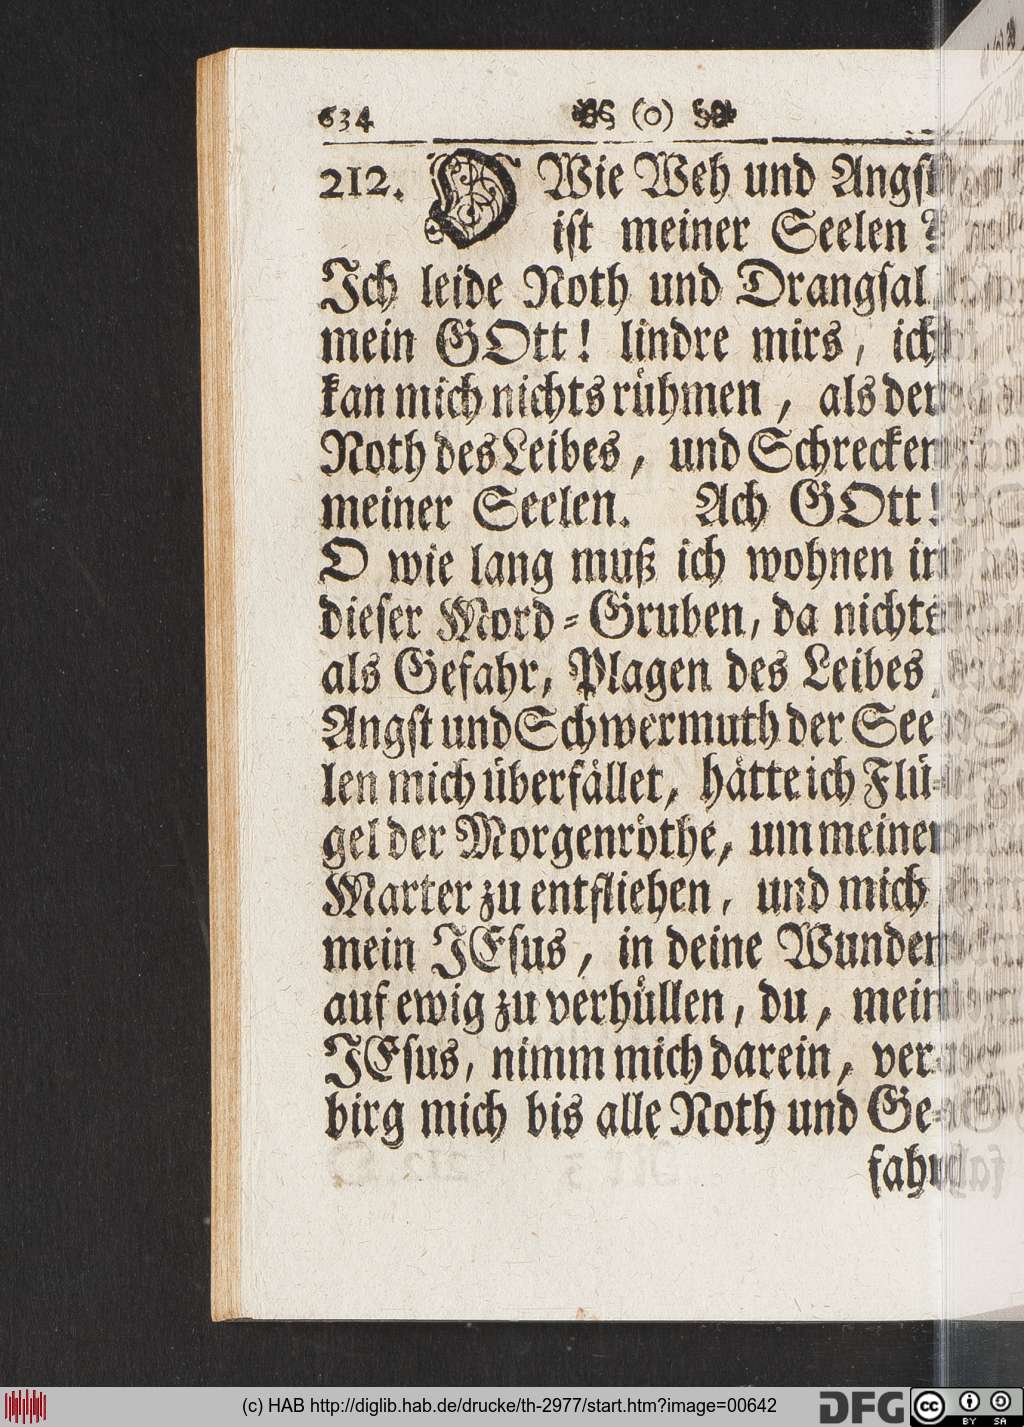 634 (o)
212. O Wie Weh und Angst
ist meiner Seelen
Ich leide Noth und Drangsal
mein GOtt! lindre mirs, ich
kan mich nichts rühmen, als der
Noth des Leibes, und Schrecken
meiner Seelen. Ach GOtt!
O wie lang muß ich wohnen in
dieser Mord-Gruben, da nichts
als Gefahr, Plagen des Leibes,
Angst und Schwermuth der See
len mich überfället, hätte ich Flü-
gel der Morgenröthe, um meiner
Marter zu entfliehen, und mich
mein JEsus, in deine Wunden
auf ewig zu verhüllen, du, mein
JEsus, nimm mich darein, ver-
birg mich bis alle Noth und Ge-
fahr
(c) HAB http://diglib.hab.de/drucke/th-2977/start.htm?image=00642
DFG
cc BY SA